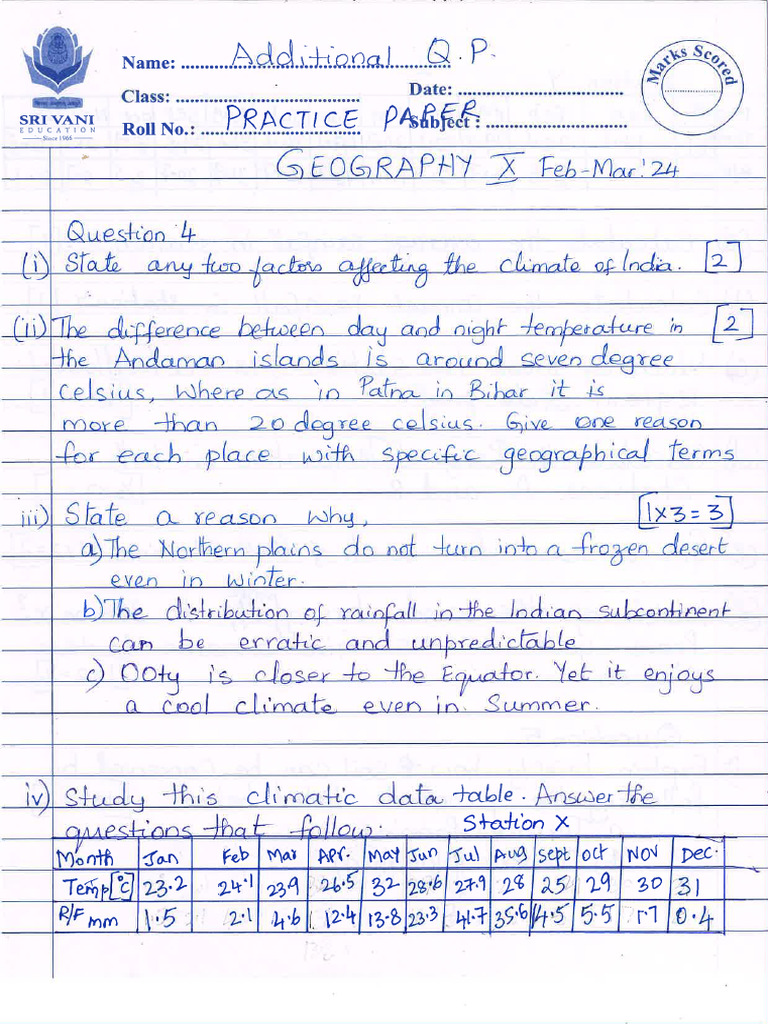 Name: Additional Q.P.
Class: Date:
Roll No.: PRACTICE PAPER Subject :
Marks Scored
SRI VANI
EDUCATION
Since 1966
GEOGRAPHY X Feb-Mar.'24
Question 4
(i) State any two factors affecting the climate of India. [2]
(ii) The difference between day and night temperature in [2]
the Andaman islands is around seven degree
celsius, where as in Patna in Bihar it is
more than 20 degree celsius. Give one reason
for each place with specific geographical terms
iii) State a reason why, [1x3=3]
a) The Northern plains do not turn into a frozen desert
even in winter.
b) The distribution of rainfall in the Indian subcontinent
can be erratic and unpredictable
c) Ooty is closer to the Equator. Yet it enjoys
a cool climate even in Summer.
iv) Study this climatic data table. Answer the
questions that follow. Station X
Month Jan Feb Mar Apr. May Jun Jul Aug Sept Oct Nov Dec.
Temp[°C] 23.2 24.1 23.9 26.5 32 28.6 27.9 28 25 29 30 31
R/F mm 1.5 2.1 4.6 12.4 13.8 23.3 41.7 35.6 14.5 5.5 1.7 0.4